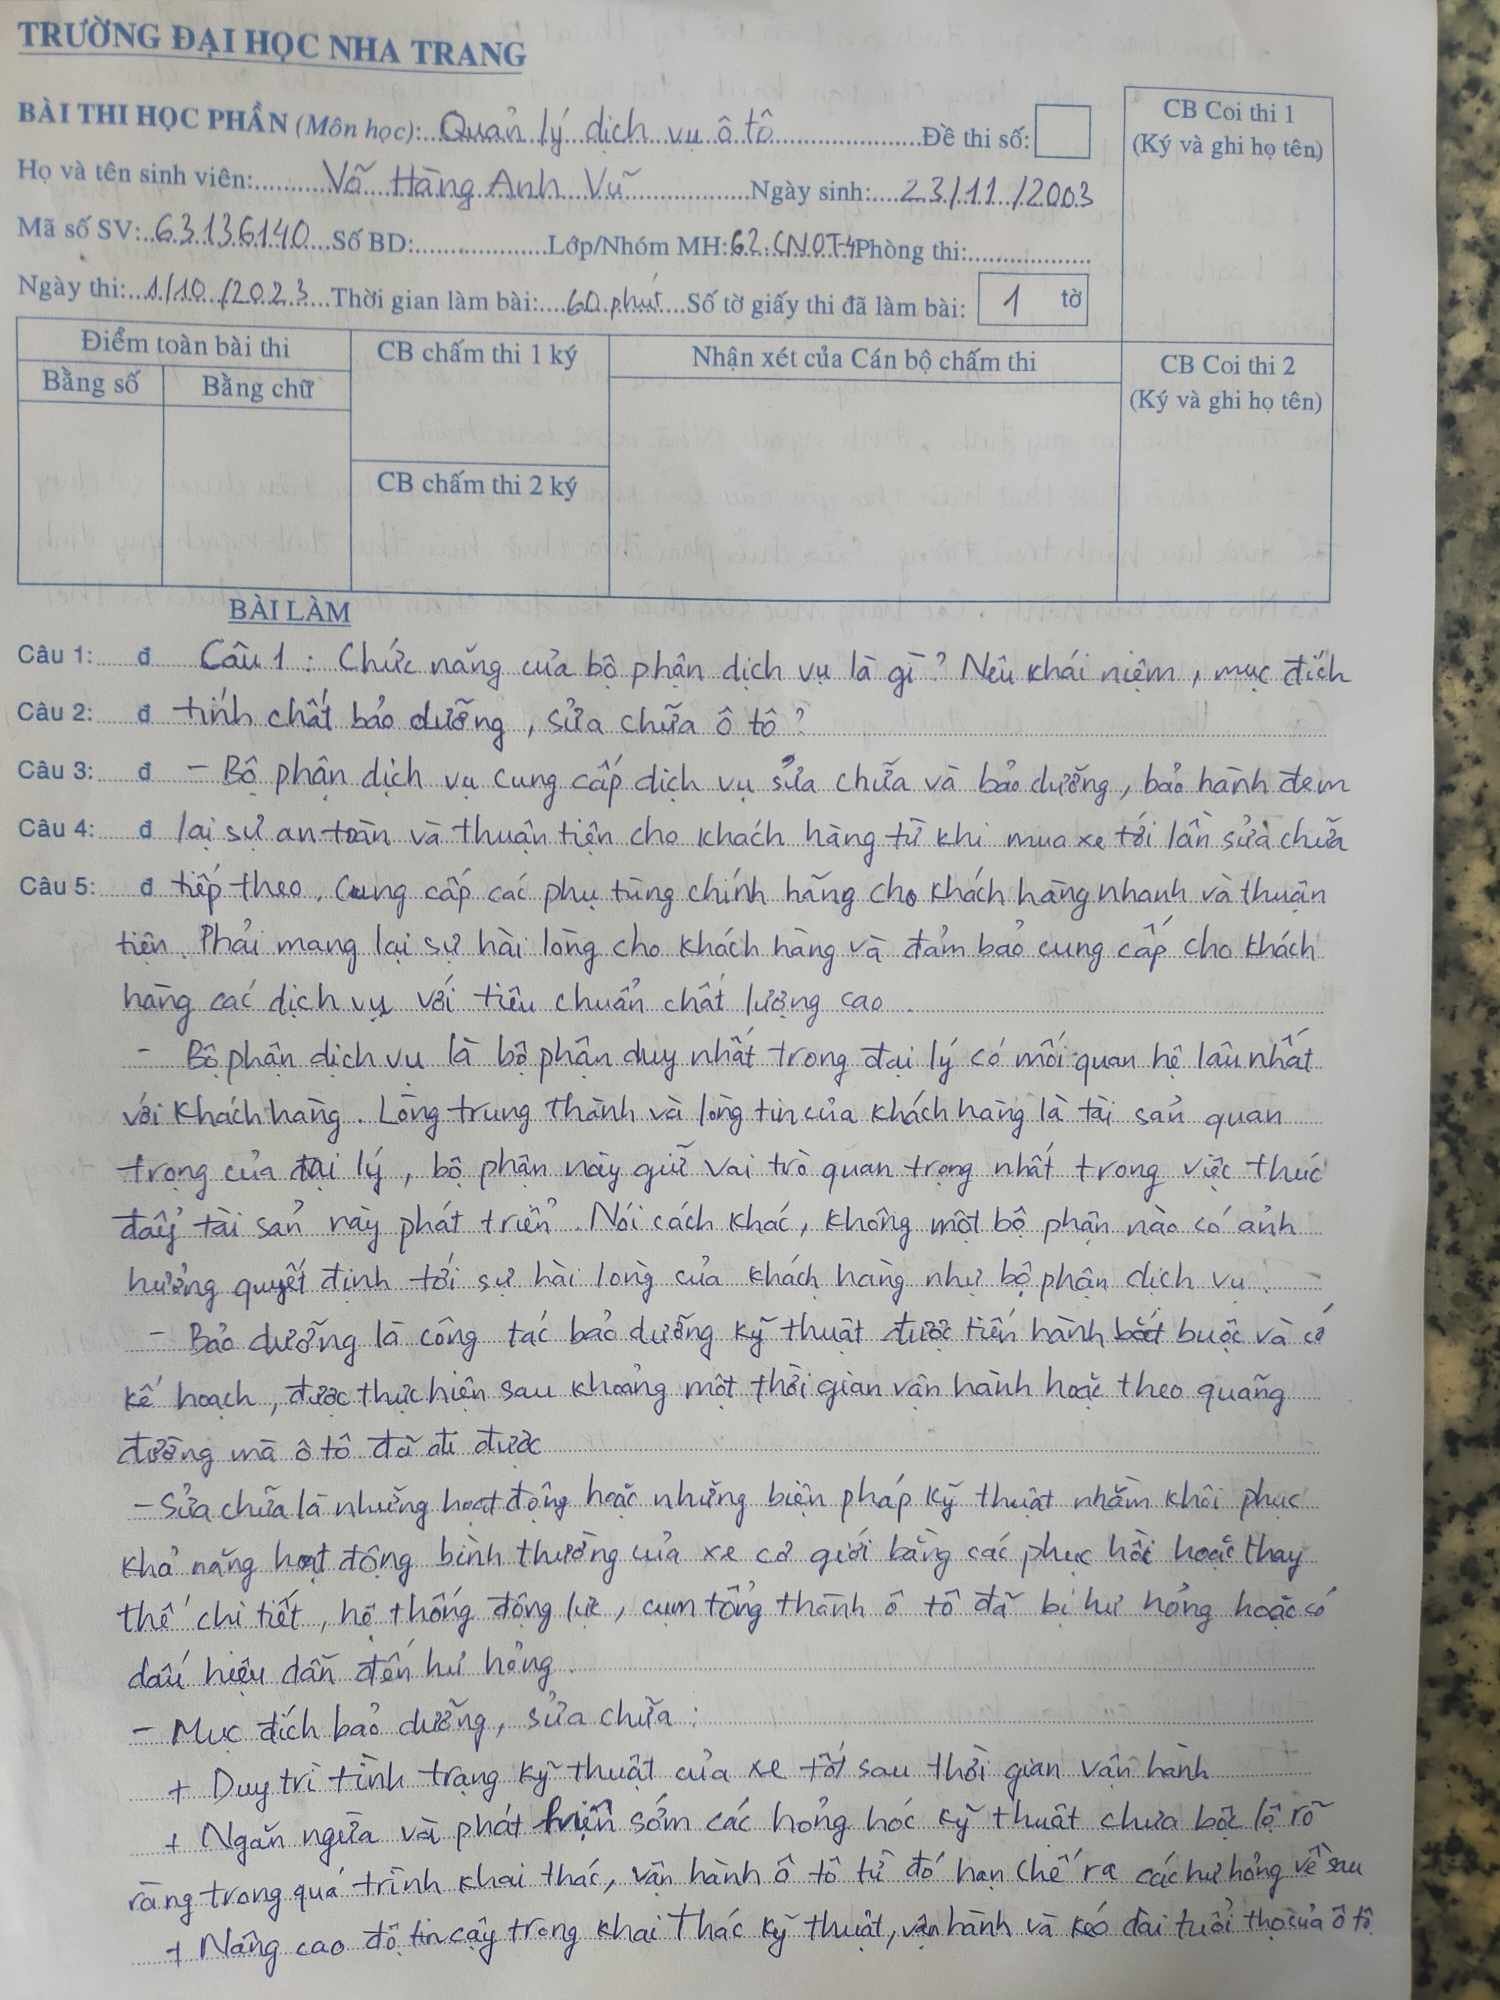 TRƯỜNG ĐẠI HỌC NHA TRANG
BÀI THI HỌC PHẦN (Môn học):...Quản lý dịch vụ ô tô...Đề thi số:
Họ và tên sinh viên:...Võ Hàng Anh Vũ...Ngày sinh:...23/11/2003
Mã số SV:...63136140...Số BD:...Lớp/Nhóm MH:62.CNOT-4 Phòng thi:...
Ngày thi:...1/10/2023...Thời gian làm bài:...60 phút...Số tờ giấy thi đã làm bài: 1 tờ
CB Coi thi 1
(Ký và ghi họ tên)
Điểm toàn bài thi
Bằng số Bằng chữ
CB chấm thi 1 ký
CB chấm thi 2 ký
Nhận xét của Cán bộ chấm thi
CB Coi thi 2
(Ký và ghi họ tên)
BÀI LÀM
Câu 1:...đ Câu 1: Chức năng của bộ phận dịch vụ là gì? Nêu khái niệm, mục đích
Câu 2:...đ tính chất bảo dưỡng, sửa chữa ô tô?
Câu 3:...đ - Bộ phận dịch vụ cung cấp dịch vụ sửa chữa và bảo dưỡng, bảo hành đem
Câu 4:...đ lại sự an toàn và thuận tiện cho khách hàng từ khi mua xe tới lần sửa chữa
Câu 5:...đ tiếp theo. Cung cấp các phụ tùng chính hãng cho khách hàng nhanh và thuận
tiện. Phải mang lại sự hài lòng cho khách hàng và đảm bảo cung cấp cho khách
hàng các dịch vụ với tiêu chuẩn chất lượng cao.
- Bộ phận dịch vụ là bộ phận duy nhất trong đại lý có mối quan hệ lâu nhất
với khách hàng. Lòng trung thành và lòng tin của khách hàng là tài sản quan
trọng của đại lý, bộ phận này giữ vai trò quan trọng nhất trong việc thúc
đẩy tài sản này phát triển. Nói cách khác, không một bộ phận nào có ảnh
hưởng quyết định tới sự hài lòng của khách hàng như bộ phận dịch vụ.
- Bảo dưỡng là công tác bảo dưỡng kỹ thuật được tiến hành bắt buộc và có
kế hoạch, được thực hiện sau khoảng một thời gian vận hành hoặc theo quãng
đường mà ô tô đã đi được
- Sửa chữa là những hoạt động hoặc những biện pháp kỹ thuật nhằm khôi phục
khả năng hoạt động bình thường của xe cơ giới bằng các phục hồi hoặc thay
thế chi tiết, hệ thống động lực, cụm tổng thành ô tô đã bị hư hỏng hoặc có
dấu hiệu dẫn đến hư hỏng.
- Mục đích bảo dưỡng, sửa chữa:
+ Duy trì tình trạng kỹ thuật của xe tốt sau thời gian vận hành
+ Ngăn ngừa và phát hiện sớm các hỏng hóc kỹ thuật chưa bộc lộ rõ
ràng trong quá trình khai thác, vận hành ô tô từ đó hạn chế ra các hư hỏng về sau
+ Nâng cao độ tin cậy trong khai thác kỹ thuật, vận hành và kéo dài tuổi thọ của ô tô